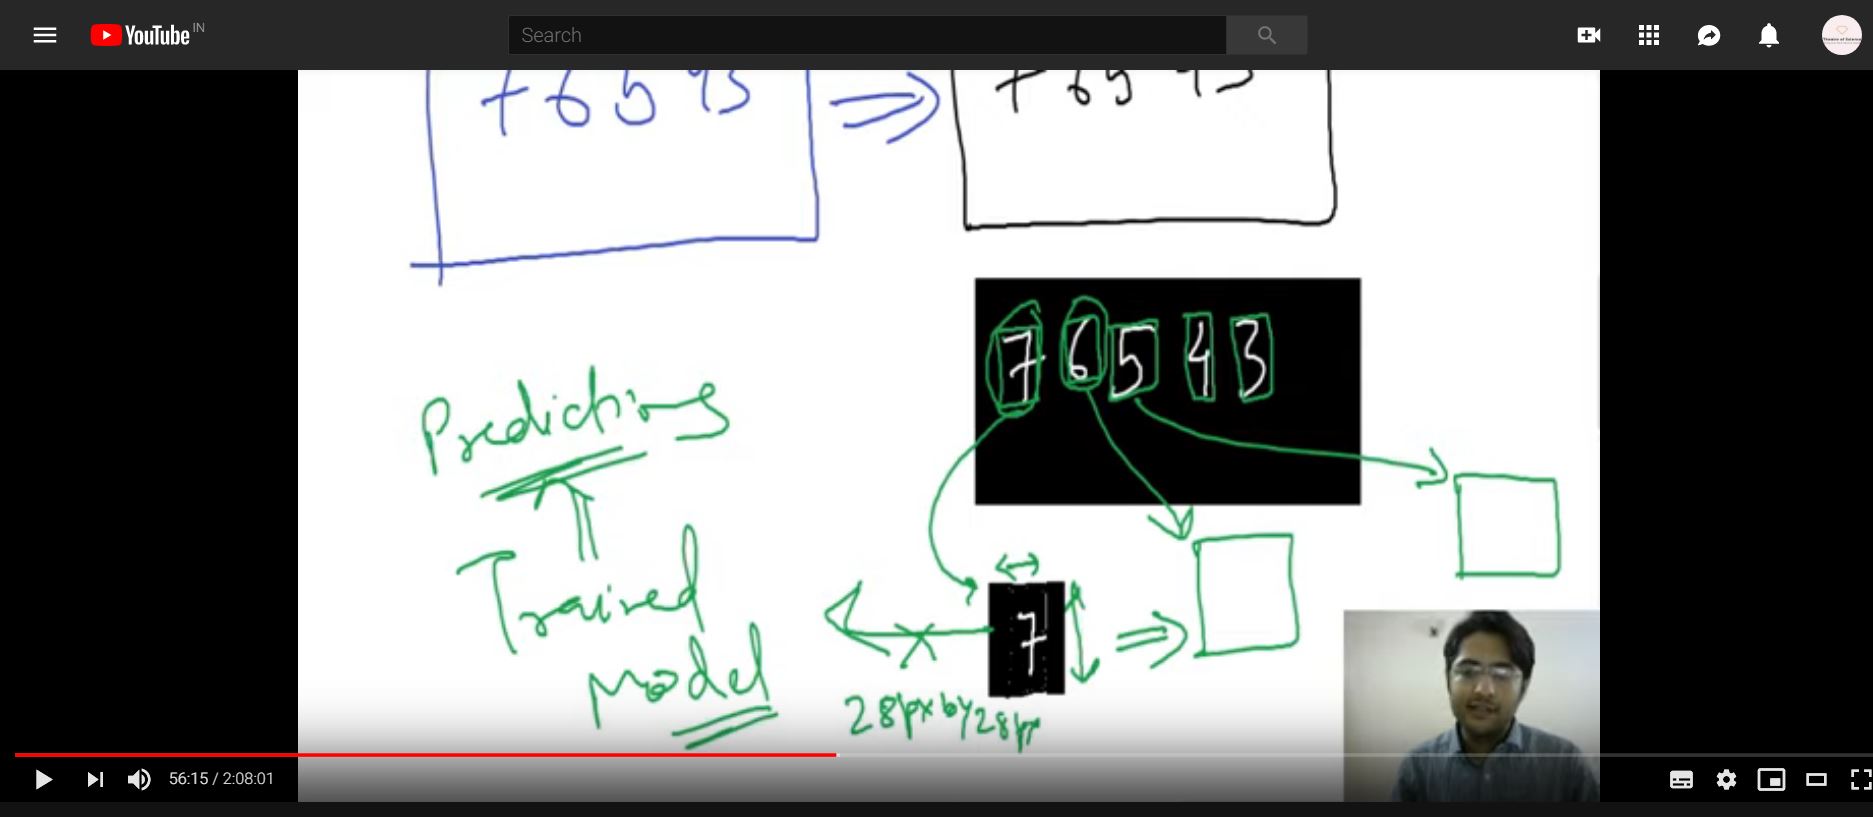 YouTube IN
Search
7 6 5 4 3
7 6 5 4 3
7 6 5 4 3
Predictions
Trained
model
7
28px by 28px
56:15 / 2:08:01